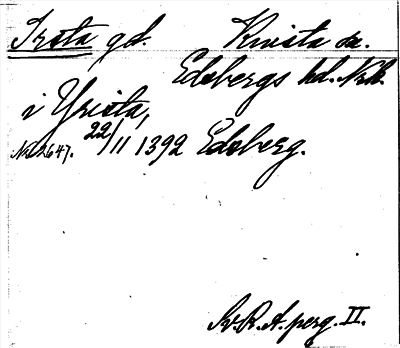 Irsta gd. Kvista sn.
Edsbergs hd. Nrk.
i Yrista,
No 2647. 22/11 1392 Edsberg.
Sv. R. A. perg. II.